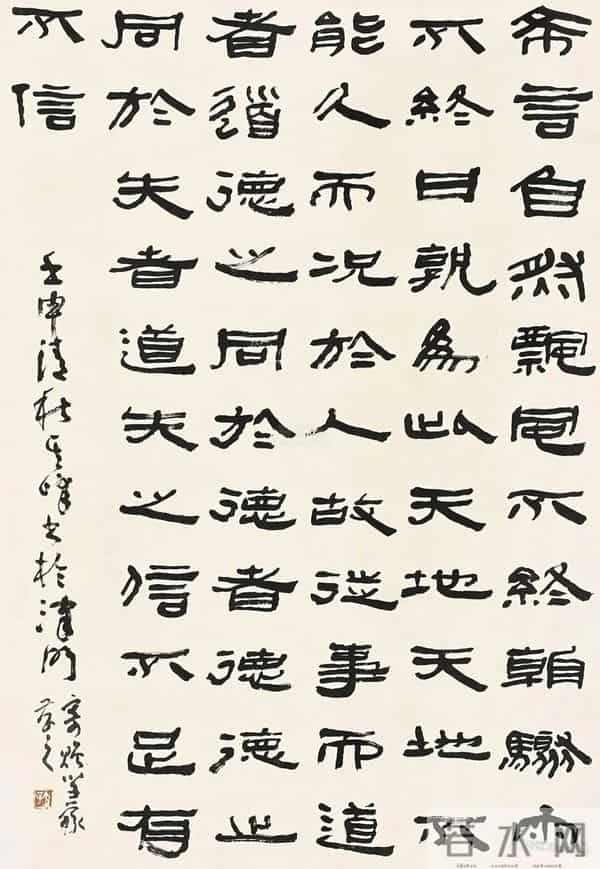 希言自然飄風不終朝驟雨
不終日孰為此天地天地不
能久而况於人故從事而道
者道德之同於德者德德之
同於失者道失之信不足有
不信
壬申清秋其峰書於津門
水网